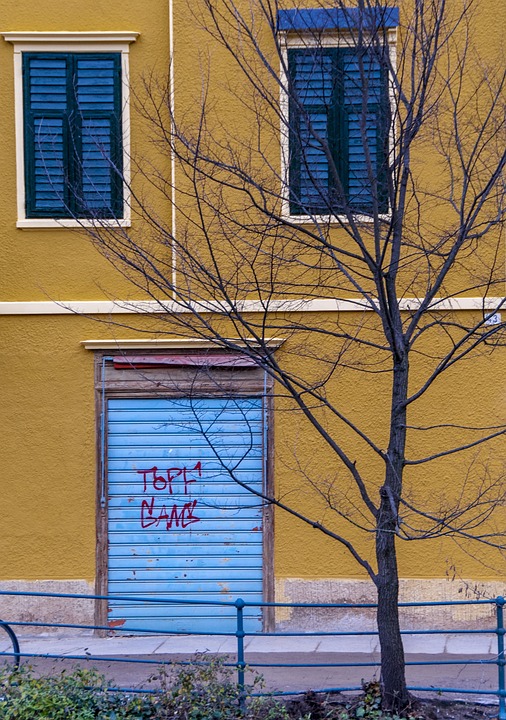 TOPF1
GANG